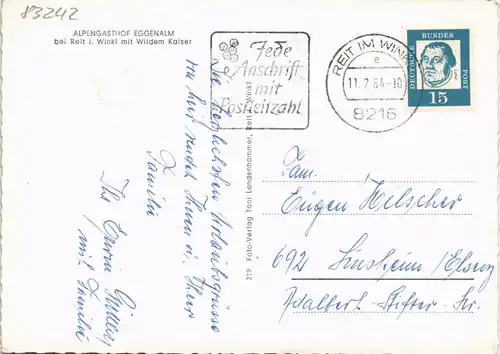 83242
ALPENGASTHOF EGGENALM
bei Reit i. Winkl mit Wildem Kaiser
Jede
Anschrift
mit
Postleitzahl
REIT IM WINKL
e
11.7.64-10
8216
DEUTSCHE BUNDESPOST
15
Die herzlichsten Urlaubsgrüsse
von hier sendet Ihnen u. Ihrer
Familie
Ihr
mit Familie
219 Foto-Verlag Toni Landenhammer, Reit i. Winkl
Fam.
Eugen Helscher
692 Sinsheim/Elsenz
Adalbert-Stifter-Str.